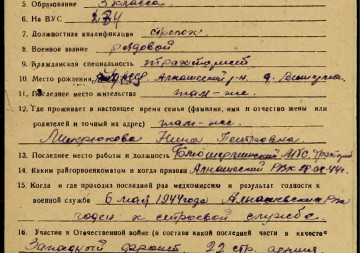 5. Образование 3 класса
6. На ВУС
7. Должностная квалификация стрелок
8. Военное звание рядовой
9. Гражданская специальность тракторист
10. Место рождения Алнашский р-н д.
11. Последнее место жительства там-же.
12. Где проживает в настоящее время семья (фамилия, имя и отчество жены или
родителей и точный их адрес) там-же.
Нина Петровна
13. Последнее место работы и должность МТС.
14. Каким райгорвоенкоматом и когда призван Алнашский РВК
15. Когда и где проходил последний раз медкомиссию и результат годности к
военной службе 6 мая 1944 года
годен к строевой службе.
16. Участие в Отечественной войне (в составе какой последней части в качестве
Западный фронт 22 стр.